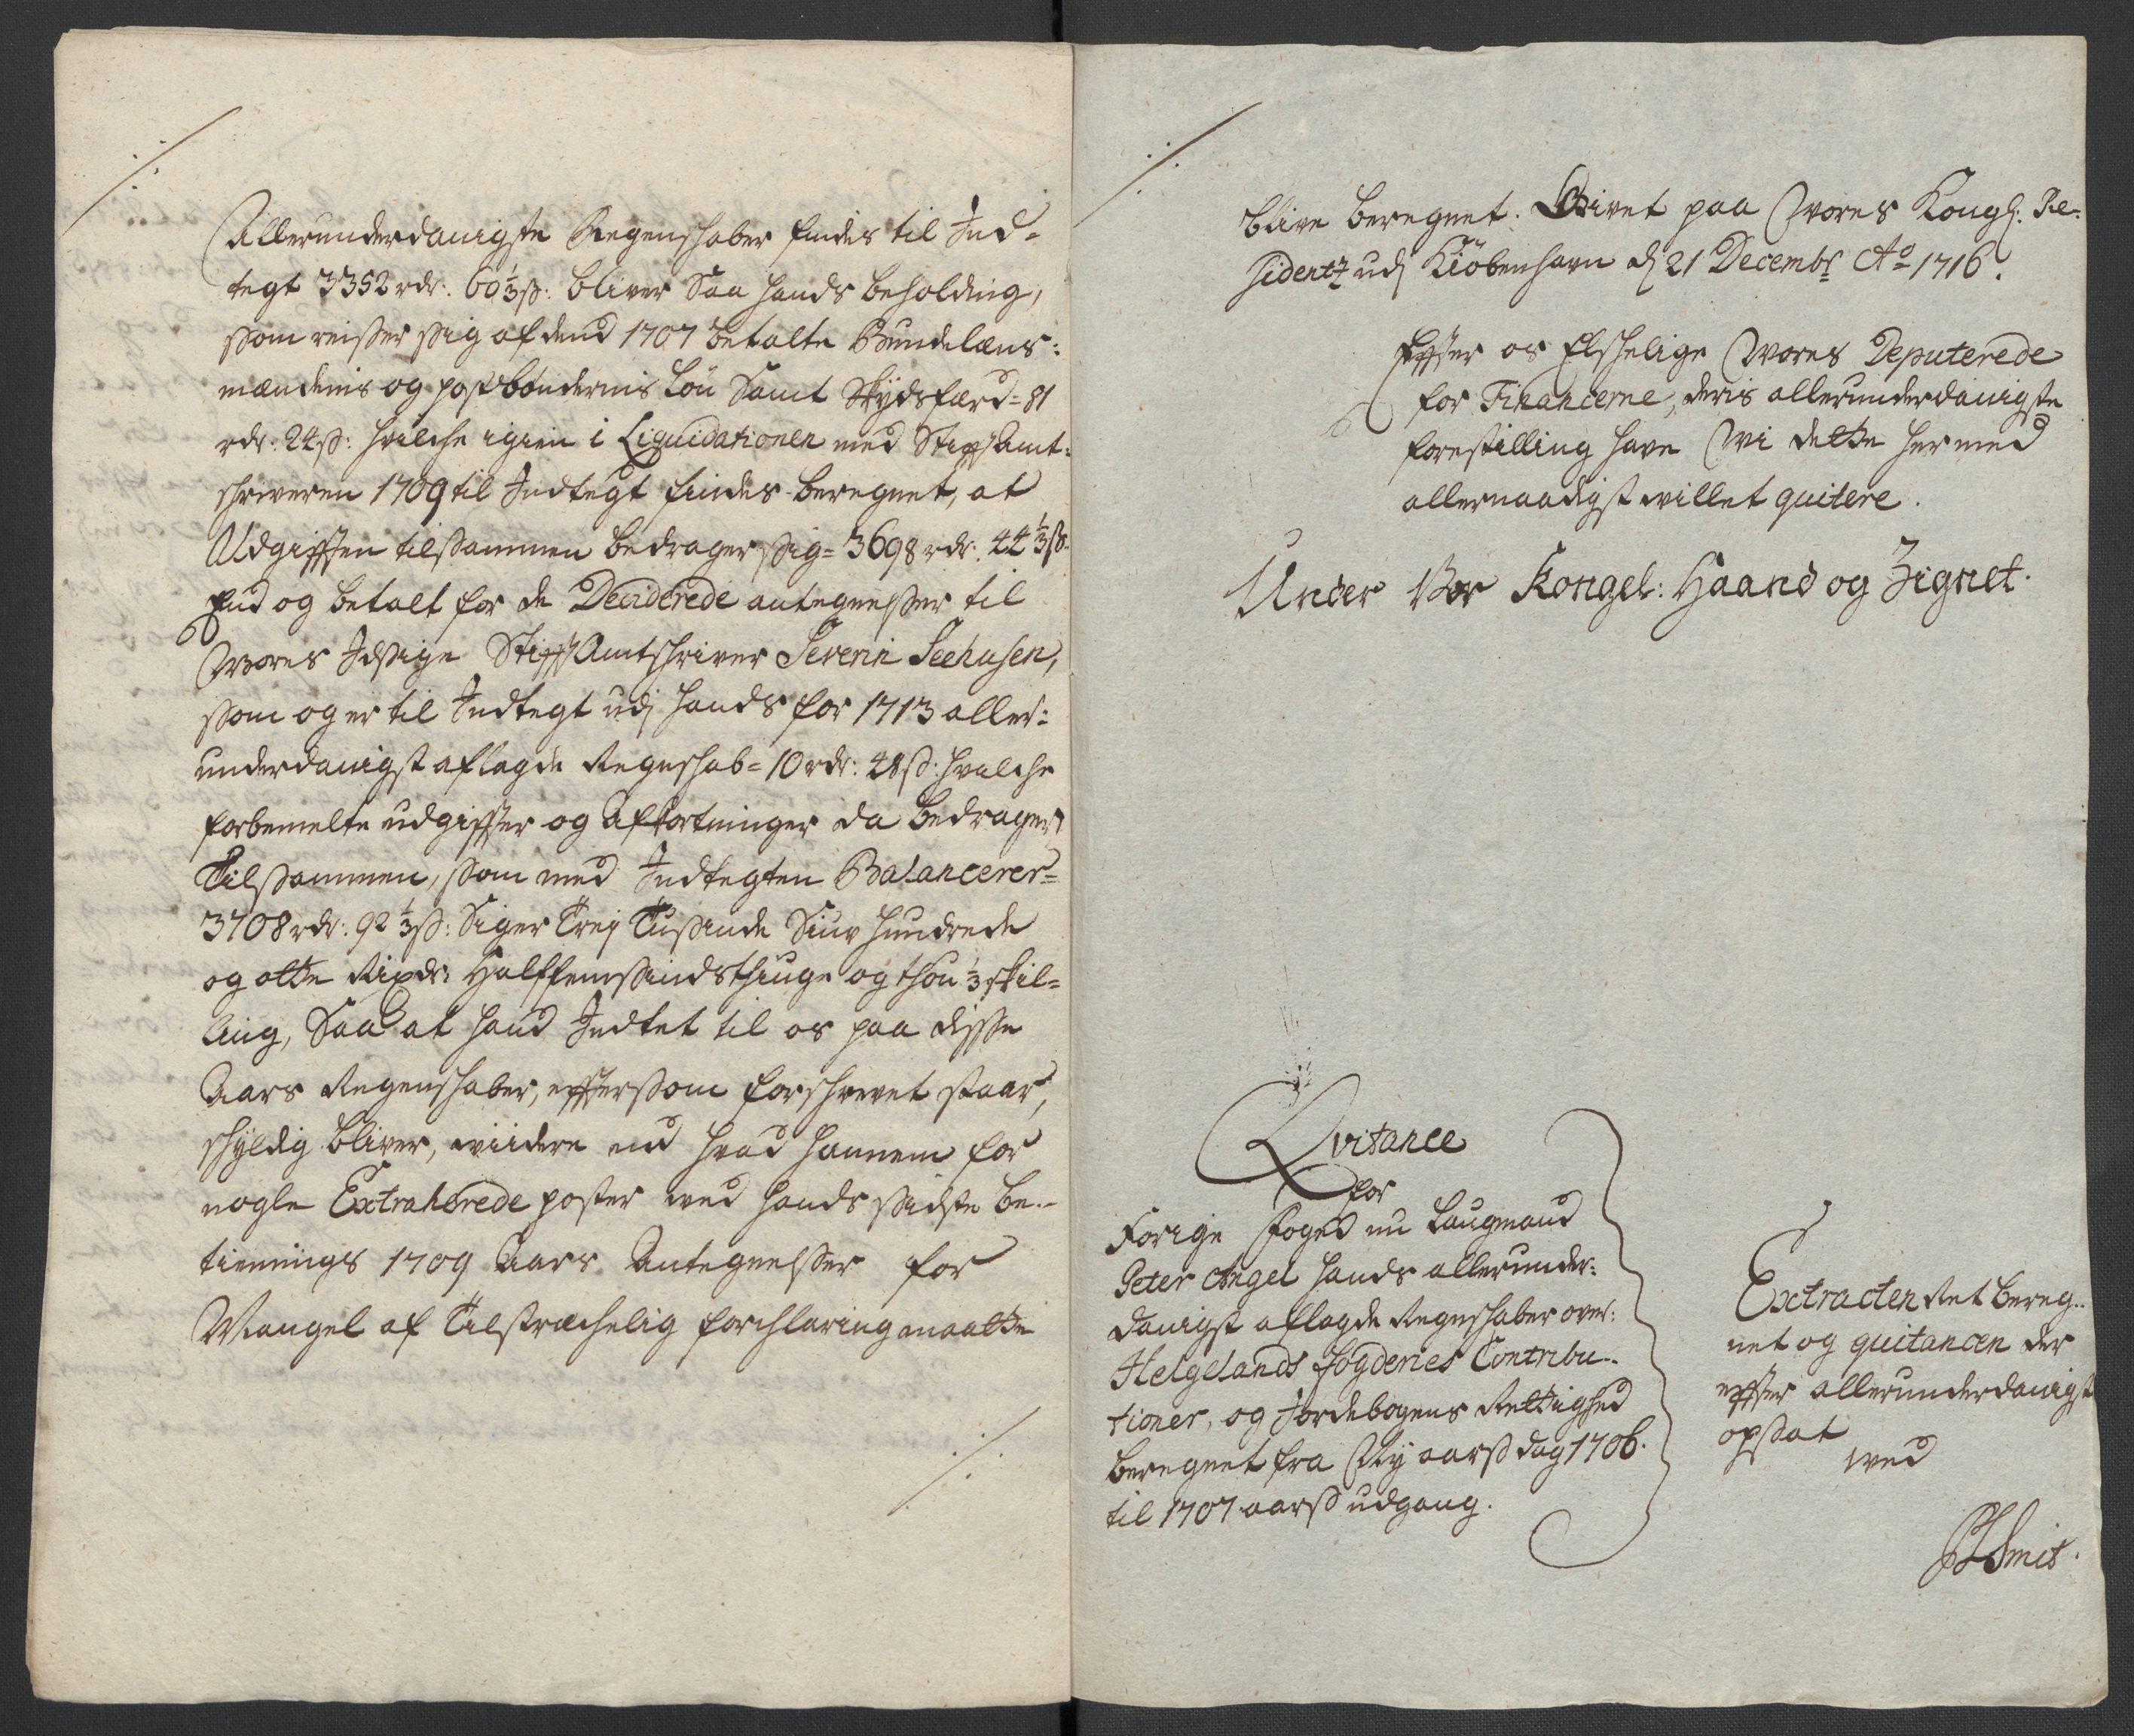 Allerunderdanigste Regenskaber findes til Ind-
tegt 3352 rdr. 60⅓ ß: bliver Saa hands beholding,
som reiser sig af dend 1707 betalte Bundelens:
mændenis og postbøndernis Løn Samt Skydsfærd = 81
rdr: 24 ß: hvilche igien i Liquidationen med StifftAmt:
schriveren 1709 til Indtegt findes beregnet, at
Udgifften tilsammen bedrager sig = 3698 rdr. 44⅓ ß
End og betalt for de Deciderede antegnelser til
Wores Idzige StifftAmtschriver Severin Seehusen,
som og er til Indtegt udj hands for 1713 aller:
underdanigst aflagde Regnschab = 10 rdr: 48 ß: hvilche
forbemelte udgiffter og Afkortninger da bedrager
Tilsammen, som med Indtegten Balancerer =
3708 rdr: 92⅓ ß: Siger Trej Tusinde Siuv hundrede
og otte Rixdr: Halffemsindstiuge og thou ⅓ skil-
ling, Saa at hand Indtet til os paa disse
Aars Regenschaber, effersom forschrevet staar,
schyldig bliver, wiidere end hvad hannem for
nogle Extraherede poster ved hands sidste be-
tiennings 1709 Aars Antegnelser for
Mangel af Tilstræchelig forchlaring maatte
blive beregnet. Givet paa Wores Kongl: Re-
sidentz udj Kiöbenhavn dj 21 Decembr Ao 1716.
Effter os Elschelige Wores Deputerede
for Financerne, deris allerunderdanigste
forestilling have Wi dette hermed
allernaadigst willet quitere.
Under Vor Kongel: Haand og Zignet.
Qvitance
for
Forige Foged nu Laugmand
Peter Angel hands allerunder:
danigst aflagde Regnschaber over:
Helgelands fogderies Contribu-
tioner, og Jordebogens Rettighed
beregnet fra Ny aarß dag 1706.
til 1707 aarß udgang.
Extracten Ret bereg-
net og quitancen der
effter allerunderdanigst
opsat
wed
Smit.